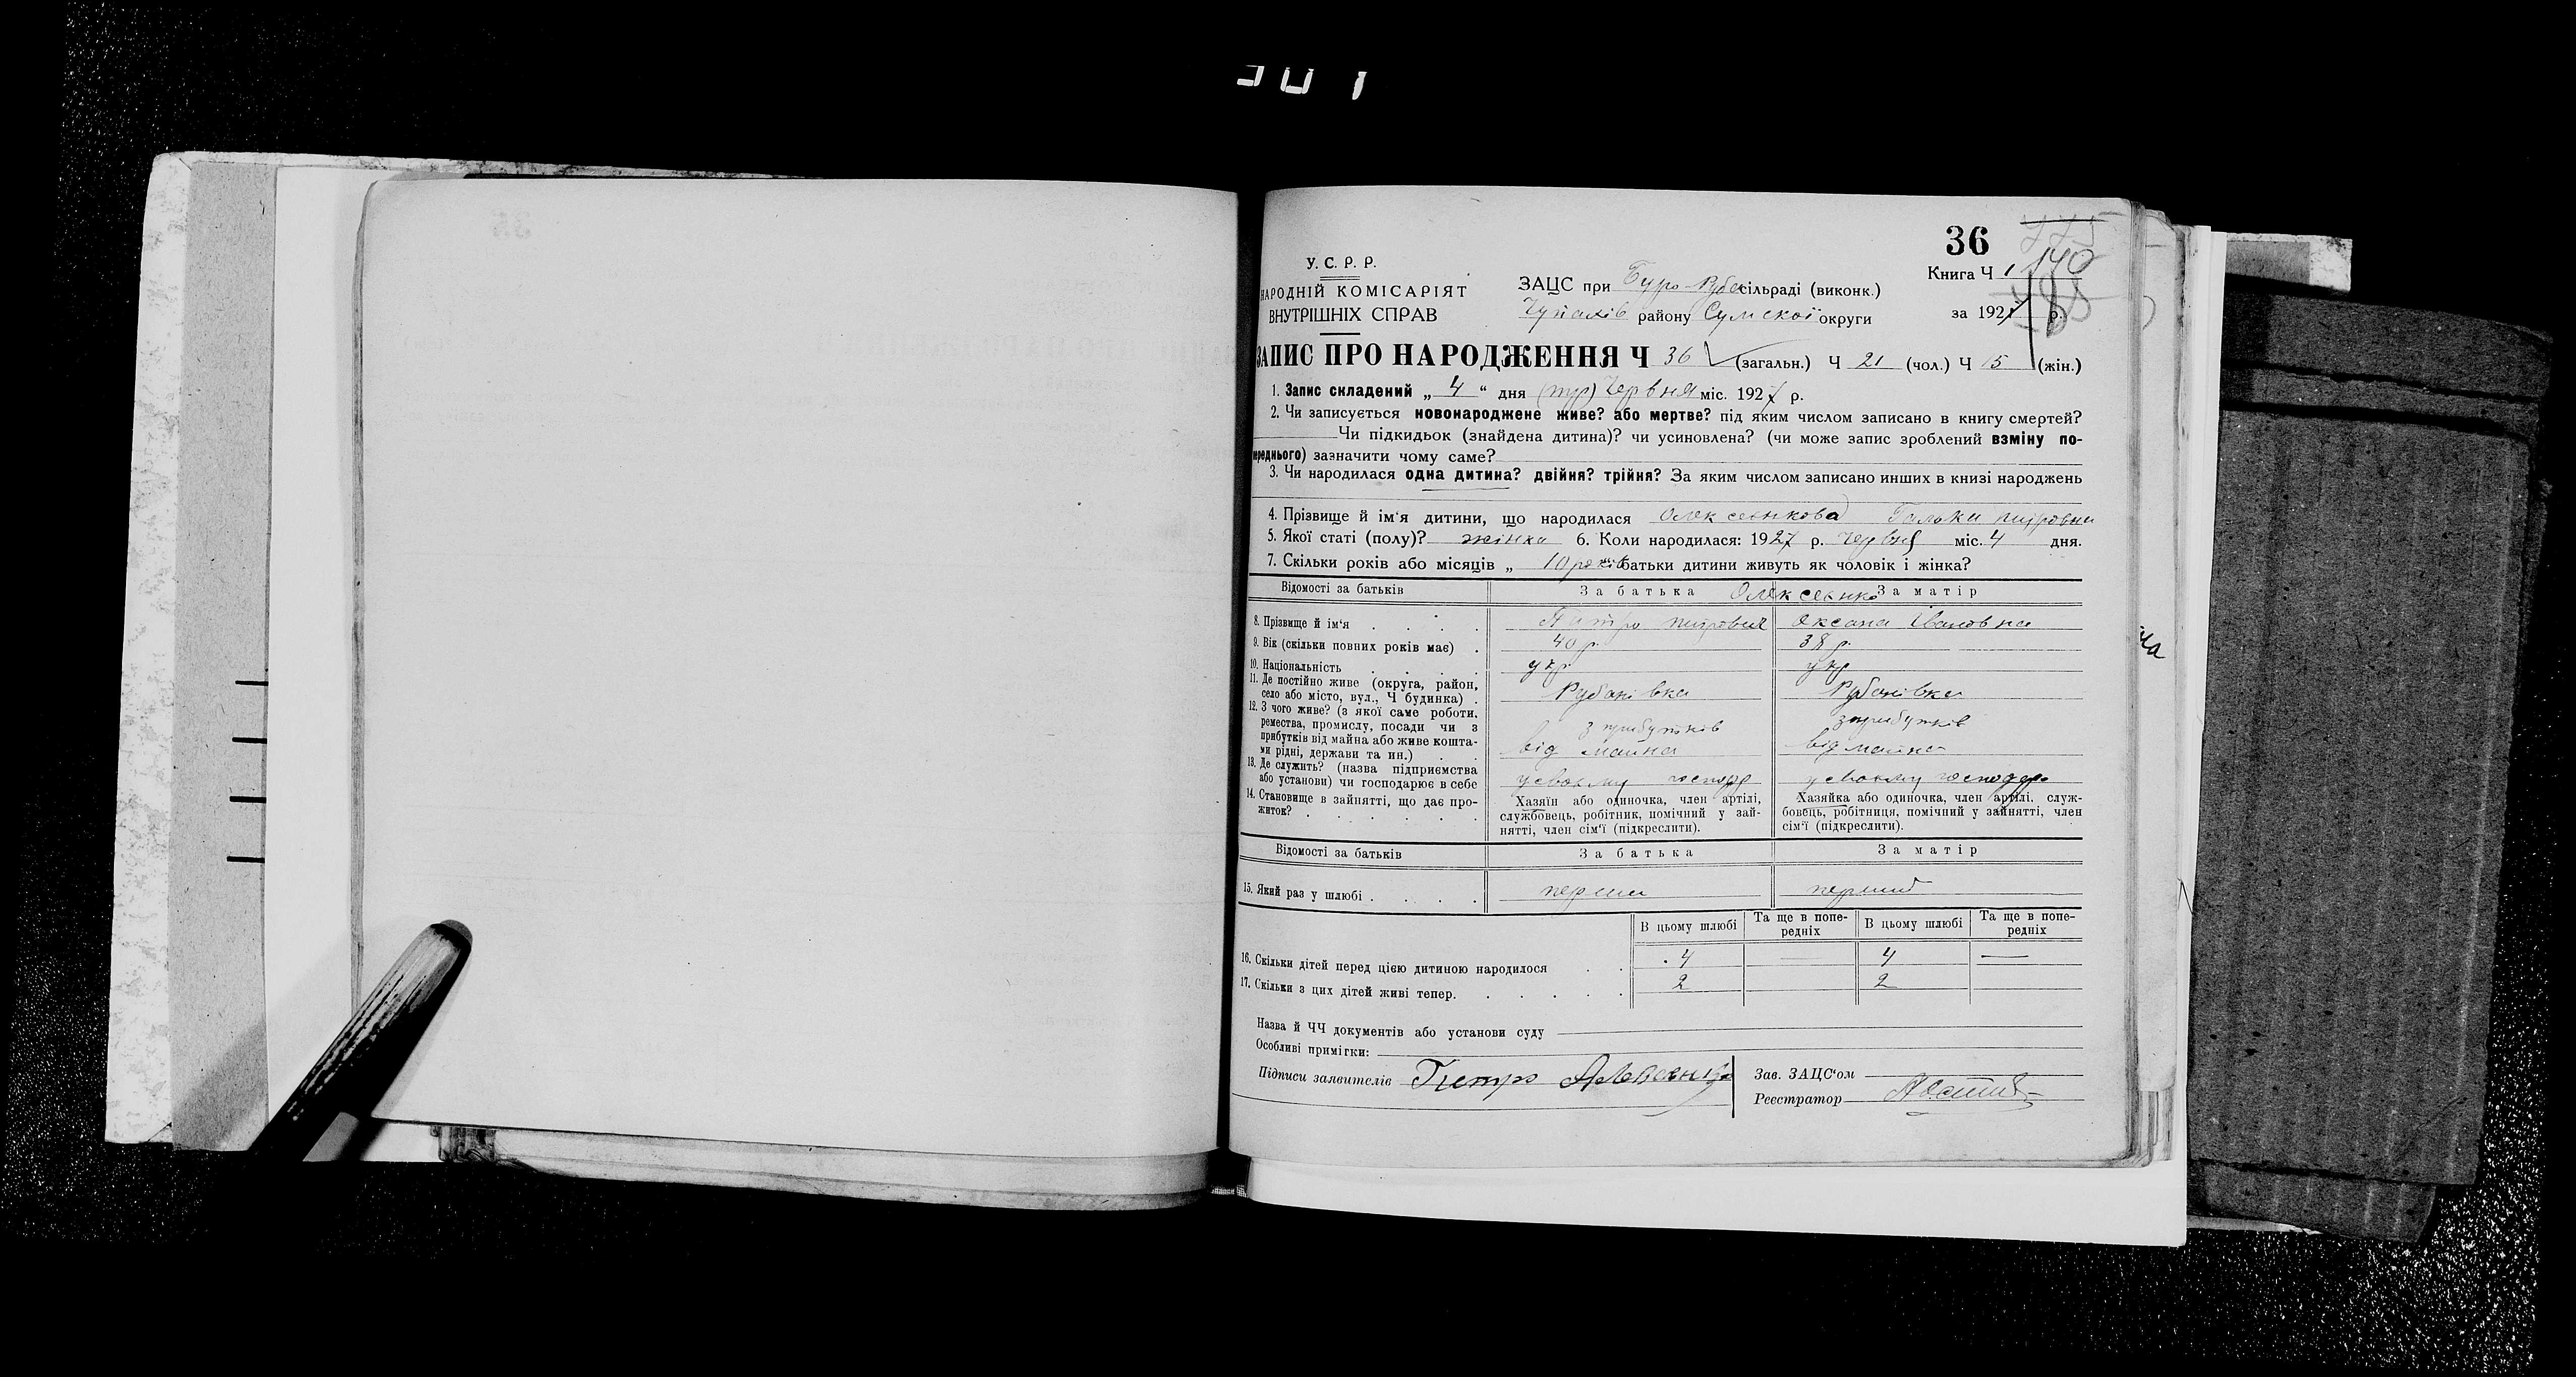 36
140
У. С. Р. Р.
НАРОДНІЙ КОМІСАРІЯТ
ВНУТРІШНІХ СПРАВ
ЗАЦС при Буро-Руба сільраді (виконк.)
району Сумської округи
Книга Ч 1
за 1927 р.
ЗАПИС ПРО НАРОДЖЕННЯ Ч 36 (загальн.) Ч 21 (чол.) Ч 15 (жін.)
1. Запис складений „ 4 “ дня червня міс. 1927 р.
2. Чи записується новонароджене живе? або мертве? під яким числом записано в книгу смертей?
Чи підкидьок (знайдена дитина)? чи усиновлена? (чи може запис зроблений взміну по-
переднього) зазначити чому саме?
3. Чи народилася одна дитина? двійня? трійня? За яким числом записано инших в книзі народжень
4. Прізвище й ім‘я дитини, що народилася Олексеєнкова Галька питровна
5. Якої статі (полу)? жінка 6. Коли народилася: 1927 р. червня міс. 4 дня.
7. Скільки років або місяців „ 10 років батьки дитини живуть як чоловік і жінка?
Відомості за батьків За батька Олексеєнко За матір
8. Прізвище й ім‘я Питро питрович Оксана Івановна
9. Вік (скільки повних років має) 40 р. 38 р.
10. Національність укр. укр
11. Де постійно живе (округа, район,
село або місто, вул., Ч будинка) Рубанівка Рубанівка
12. З чого живе? (з якої саме роботи,
ремества, промислу, посади чи з
прибутків від майна або живе кошта-
ми рідні, держави та ин.)
з прибутків
від майна
з прибутків
від майна
13. Де служить? (назва підприємства
або установи) чи господарює в себе
у своьму господар у своьму господар
14. Становище в зайнятті, що дає про-
житок?
Хазяїн або одиночка, член артілі,
службовець, робітник, помічний у зай-
нятті, член сім‘ї (підкреслити).
Хазяйка або одиночка, член артілі, служ-
бовець, робітниця, помічний у зайнятті, член
сім‘ї (підкреслити).
Відомості за батьків За батька За матір
15. Який раз у шлюбі перши перший
В цьому шлюбі Та ще в попе-
редніх В цьому шлюбі Та ще в попе-
редніх
16. Скільки дітей перед цією дитиною народилося 4 — 4 —
17. Скільки з цих дітей живі тепер. 2 2
Назва й ЧЧ документів або установи суду
Особливі примігки:
Підписи заявителів Петро
Зав. ЗАЦС‘ом
Реєстратор